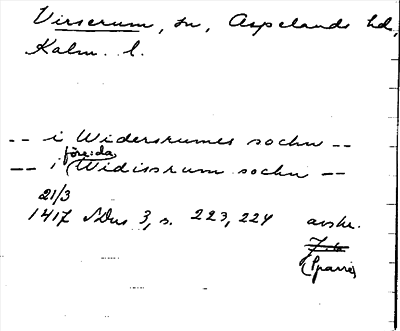 Virserum, sn, Aspelands hd,
Kalm. l.
-- i Widersrumes sochn --
före: da
-- i (Widissrum sochn --
21/3
1417 SDns 3, s. 223, 224 avskr.
(Sparre)